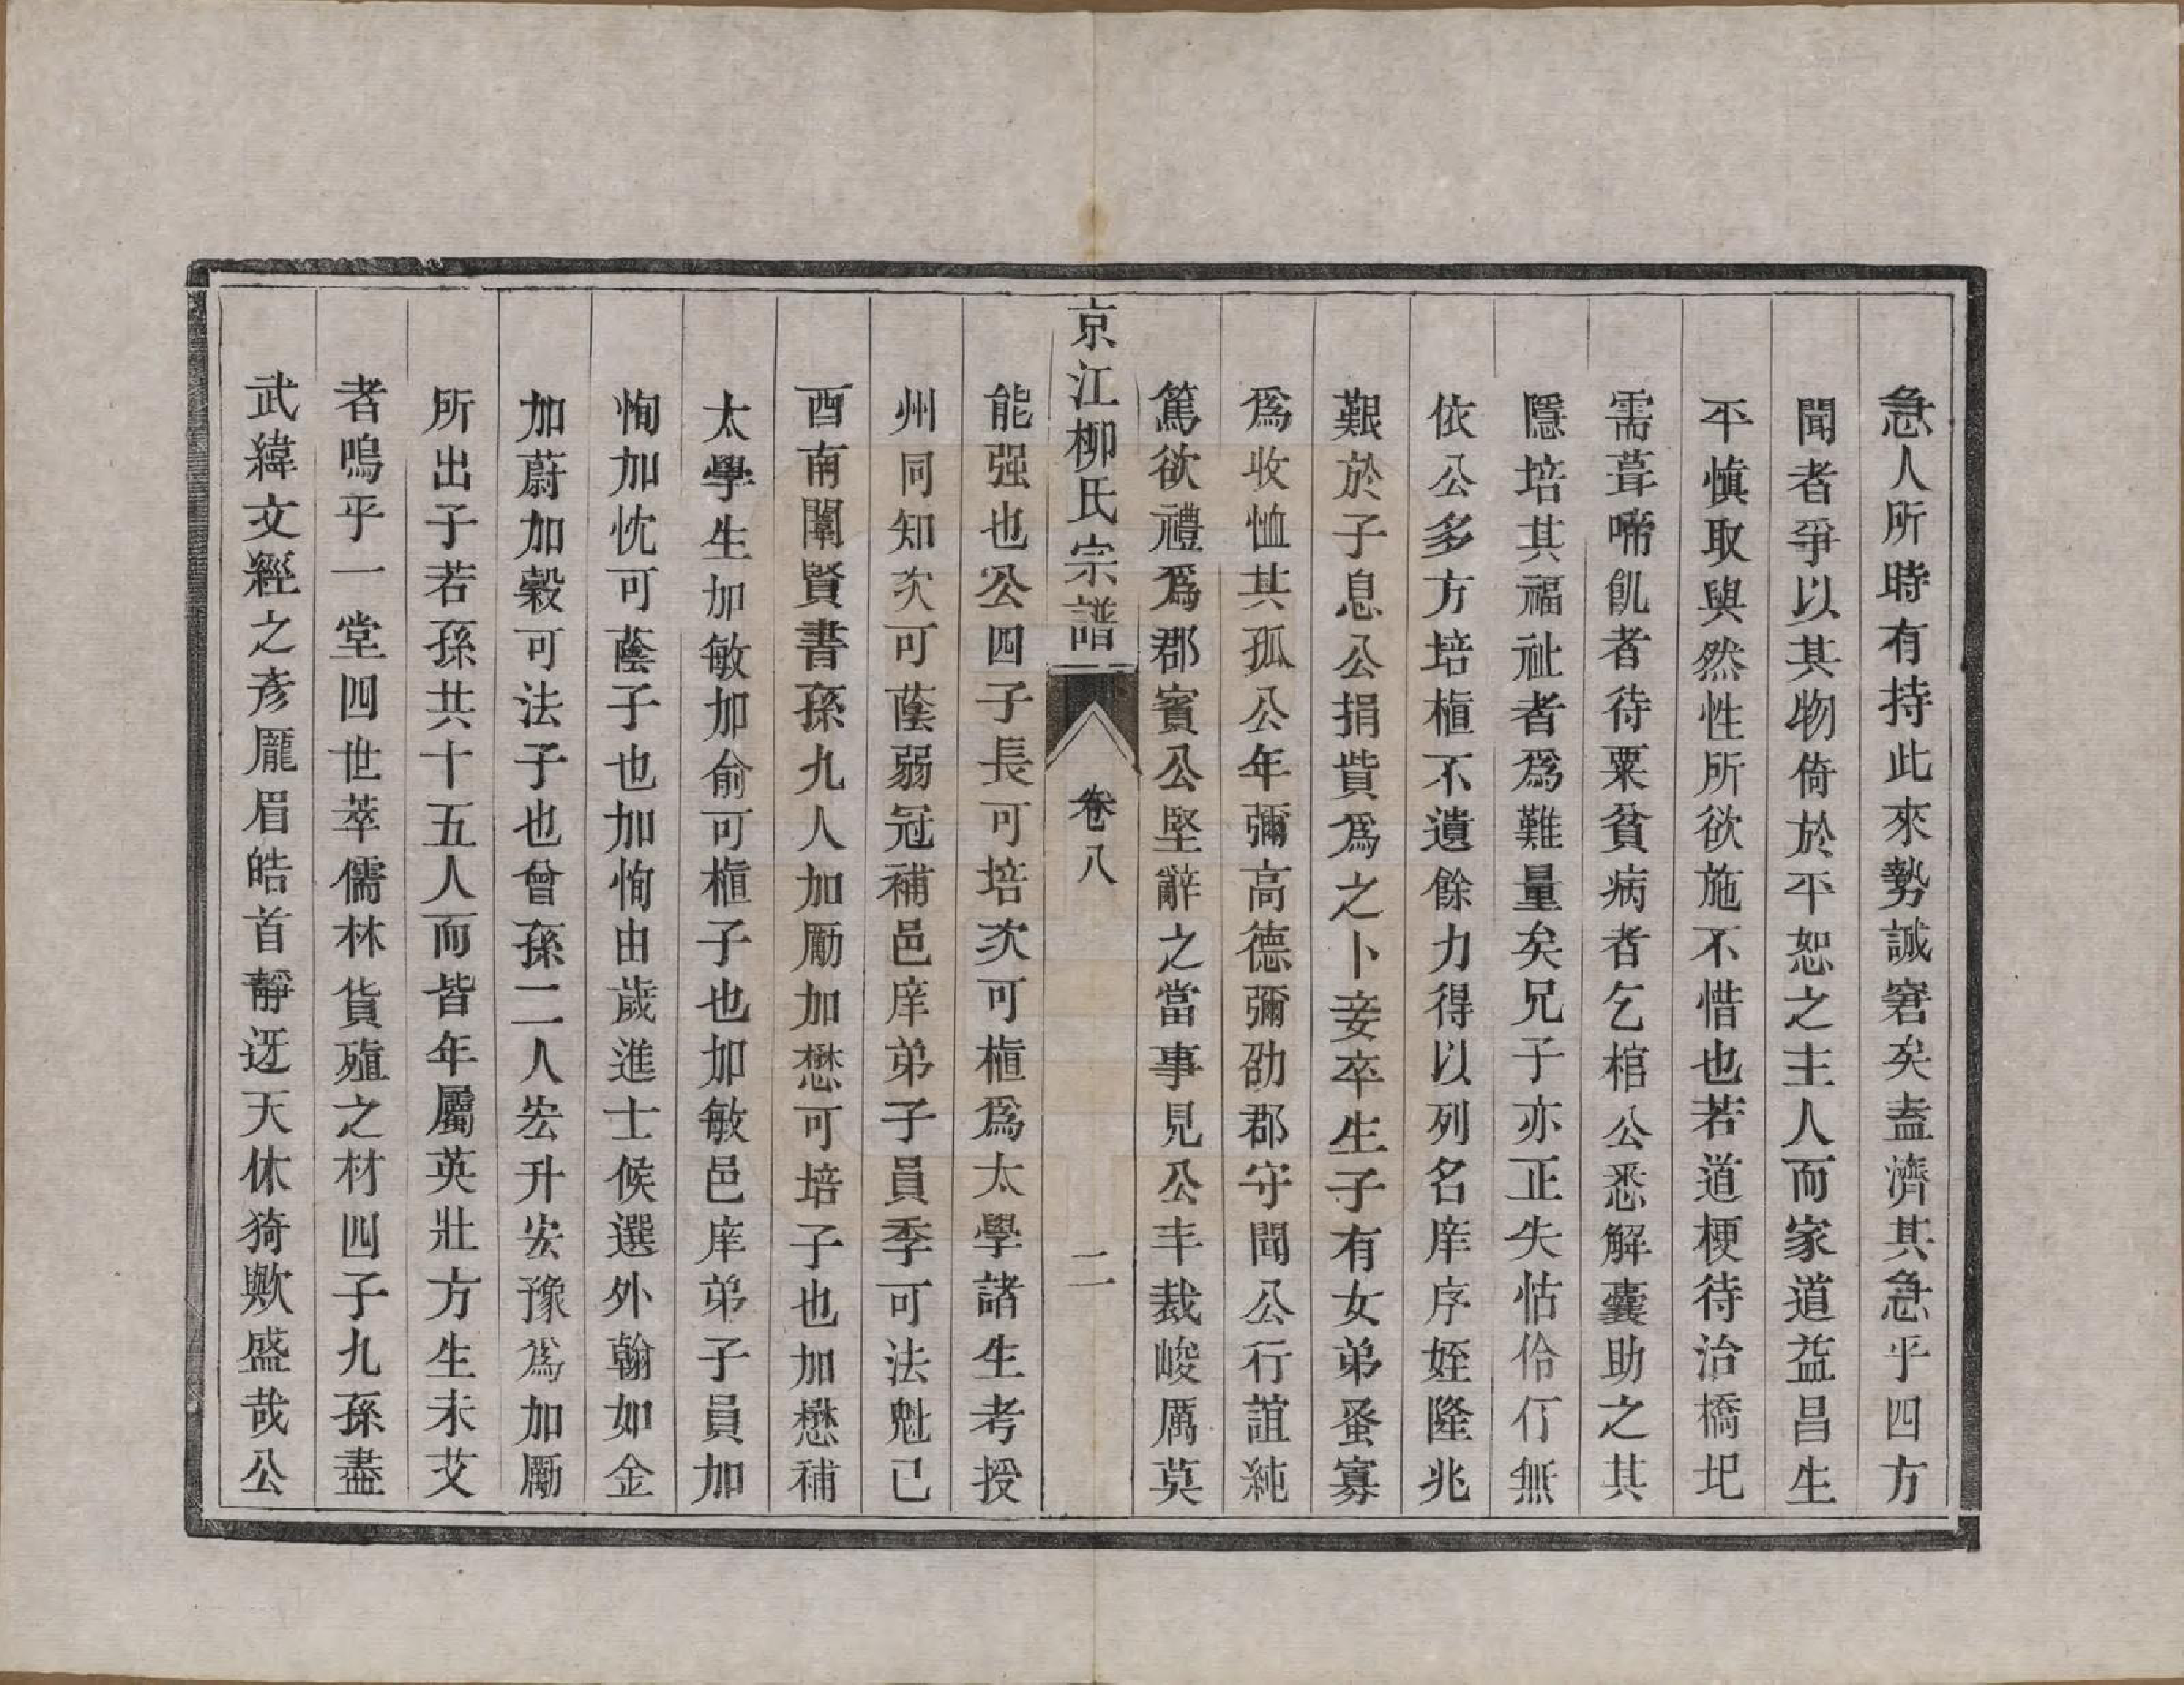 急人所時有持此來勢誠窘矣盍濟其急乎四方
聞者爭以其物倚於平恕之主人而家道益昌生
平慎取與然性所欲施不惜也若道梗待治橋圯
需葺啼飢者待粟貧病者乞棺公悉解囊助之其
隱培其福祉者爲難量矣兄子亦正失怙伶仃無
依公多方培植不遺餘力得以列名庠序姪隆兆
艱於子息公捐貲爲之卜妾卒生子有女弟蚤寡
爲收恤其孤公年彌高德彌劭郡守聞公行誼純
篤欲禮爲郡賓公堅辭之當事見公丰裁峻厲莫
京江柳氏宗譜 卷八 二
能强也公四子長可培次可植爲太學諸生考授
州同知次可蔭弱冠補邑庠弟子員季可法魁己
酉南闈賢書孫九人加勵加懋可培子也加懋補
太學生加敏加俞可植子也加敏邑庠弟子員加
恂加忱可蔭子也加恂由歲進士候選外翰如金
加蔚加穀可法子也曾孫二人宏升宏豫爲加勵
所出子若孫共十五人而皆年屬英壯方生未艾
者嗚乎一堂四世萃儒林貨殖之材四子九孫盡
武緯文經之彥龎眉皓首靜迓天休猗歟盛哉公